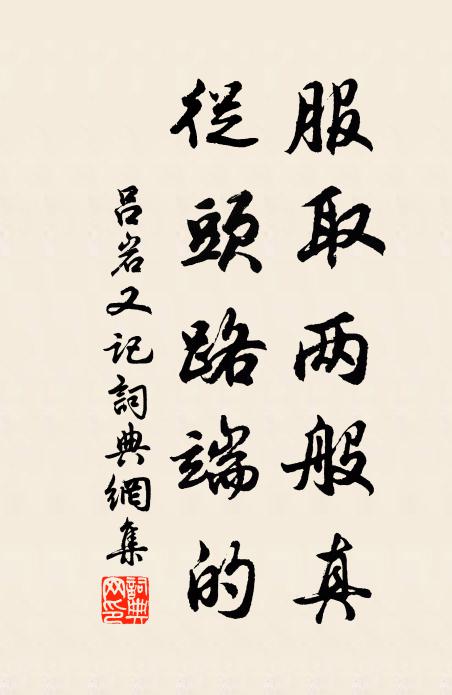 服取两般真
從頭路端的
吕岩又记詞典網集
詞典网印